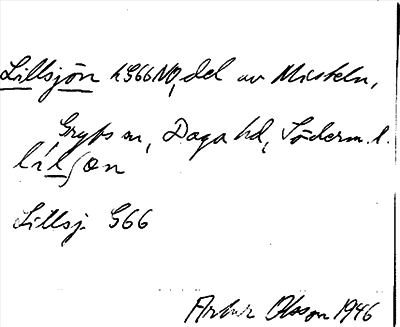 Lillsjön hS66NO, del av Misteln,
Gryts sn, Daga hd, Söderm. l.
li̱lʃøn
Lillsj. S66
Arthur Olsson 1946